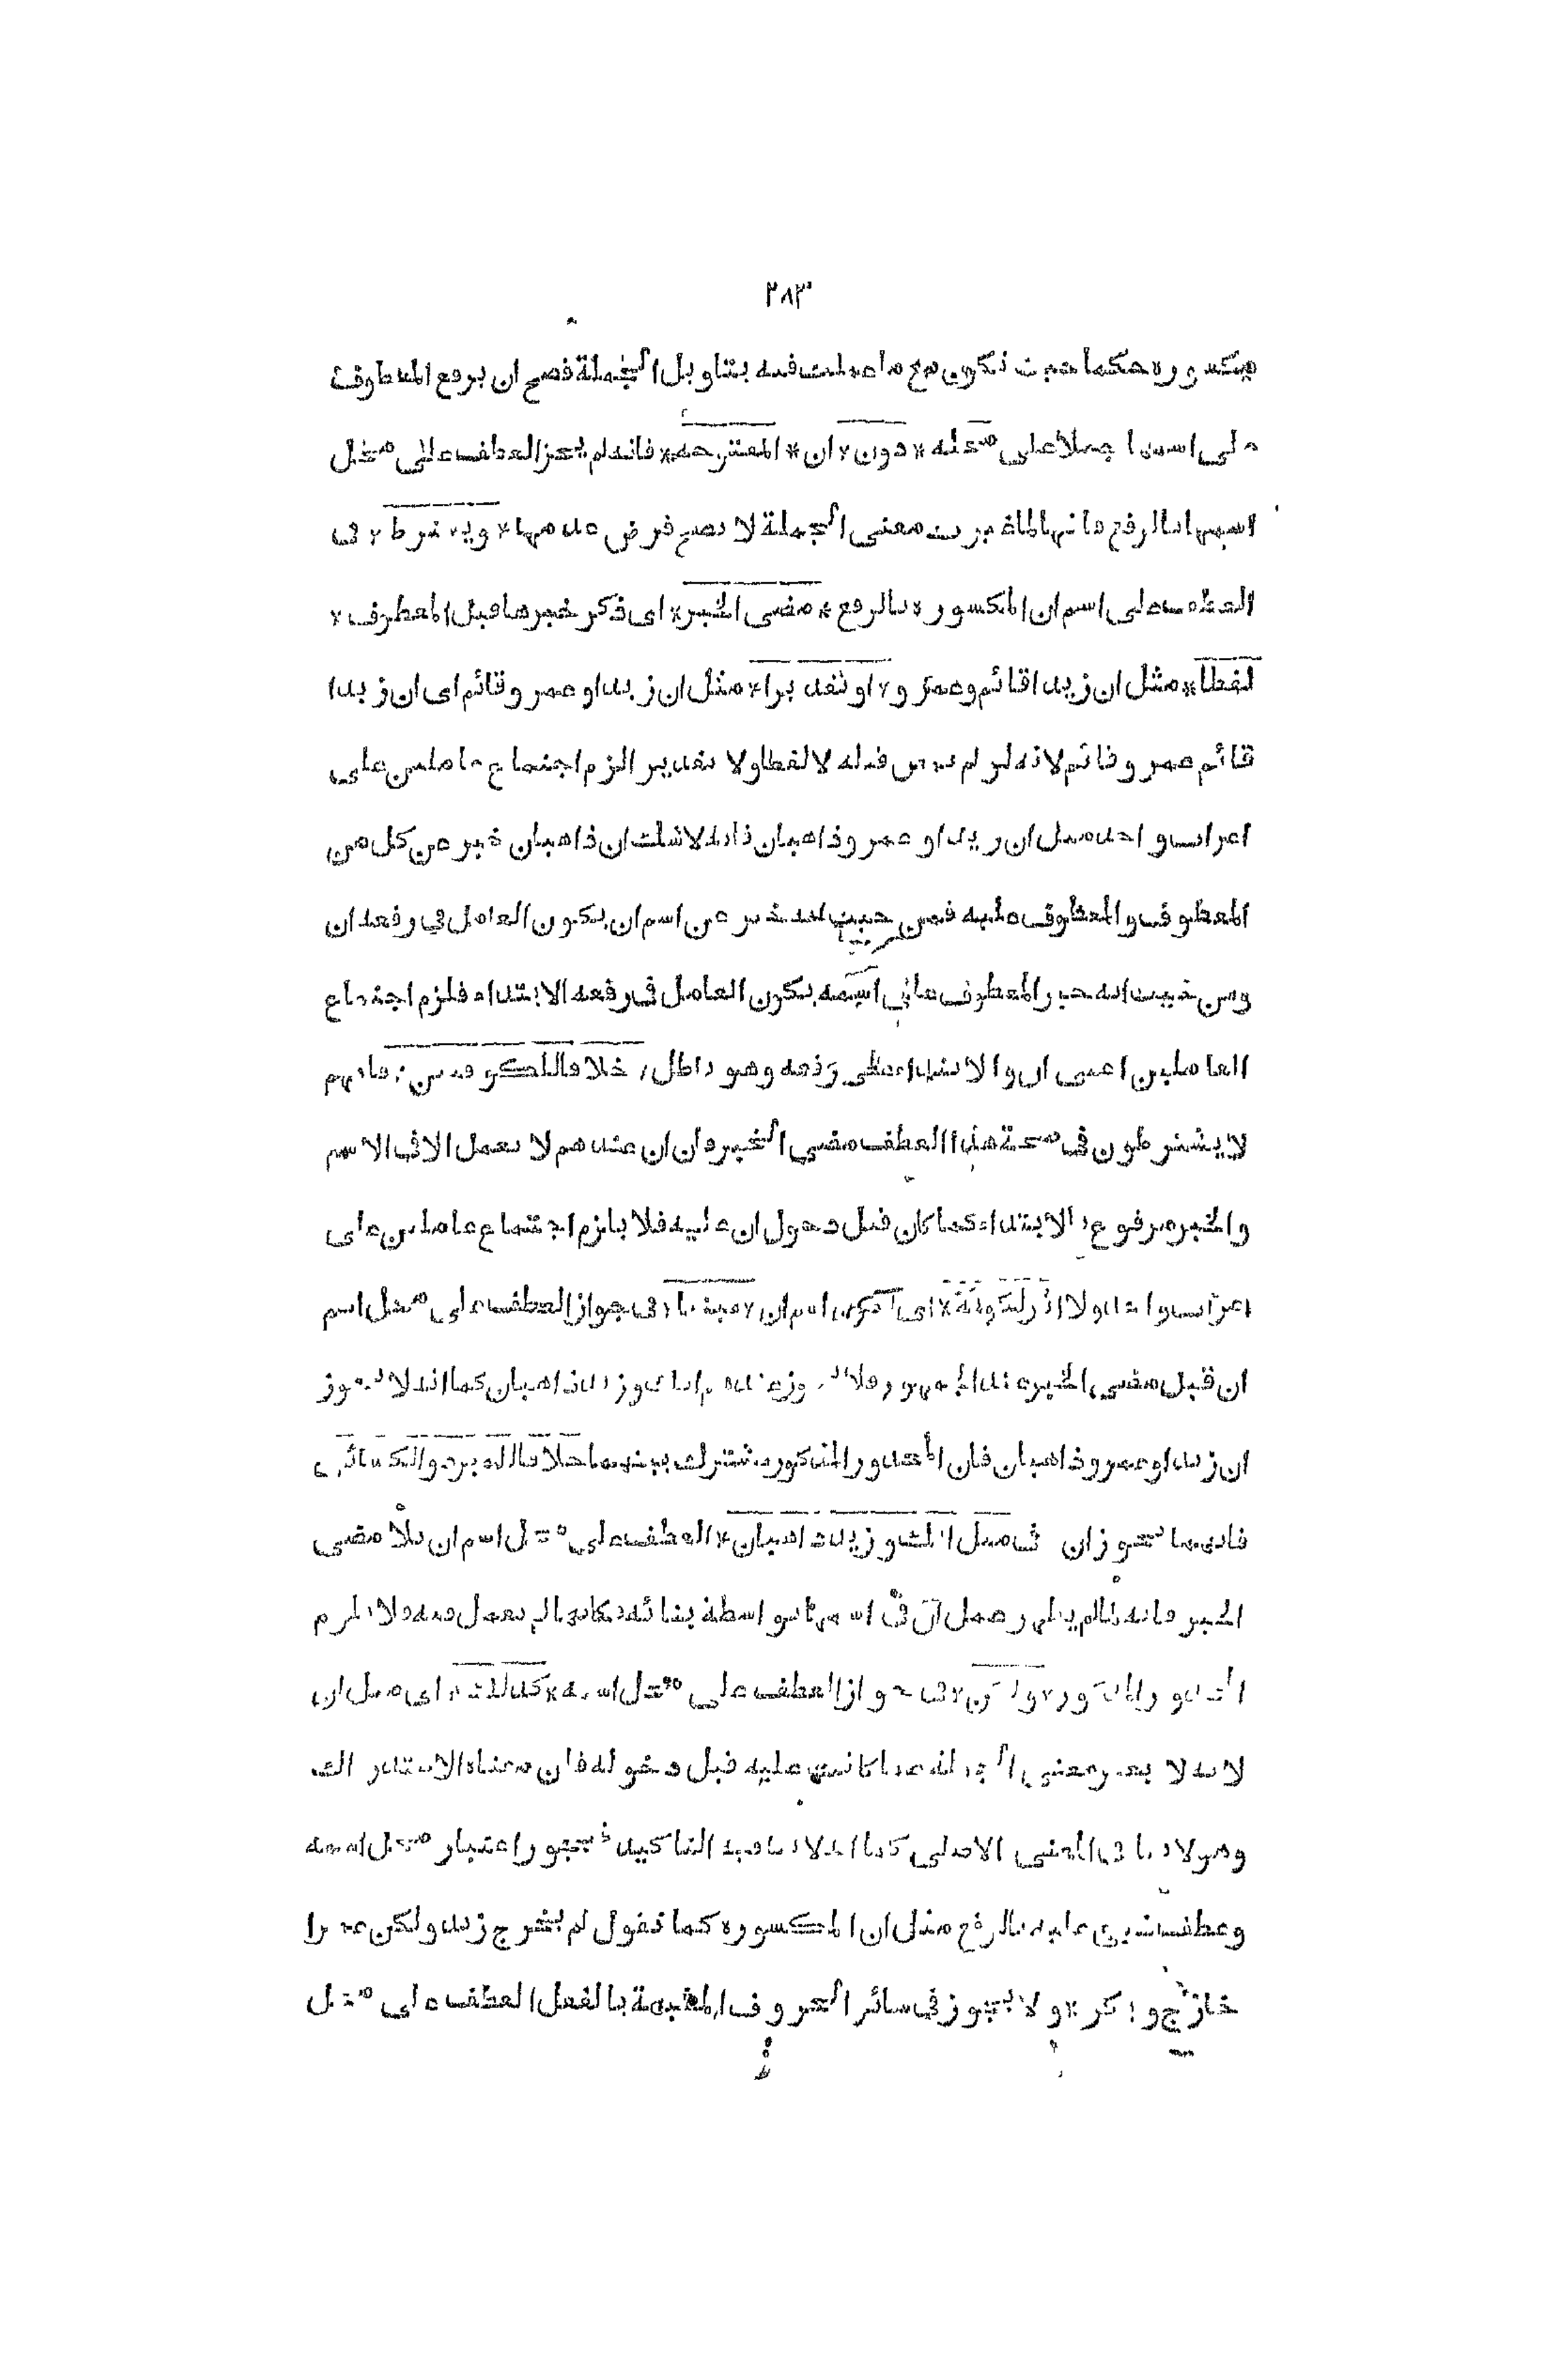 ٢٨٣
مكسوره حكما حيث تكون مع ما عملت فيه بتاويل الجملة فصح ان يرفع المعطوف
على اسمها حملا على محله * دون * ان * المفتوحه * فانه لم يجز العطف على محل
اسمها بالرفع فانها لما غيرت معنى الجملة لا يصح فرض عدمها * ويشترط * فى
العطف على اسم ان المكسوره بالرفع * مضى الخبر * اى ذكر خبرها قبل المعطوف *
لفظا * مثل ان زيدا قائم وعمرو * او تقديرا * مثل ان زيدا وعمرو قائم اى ان زيدا
قائم عمرو قائم لانه لو لم يمض قبله لا لفظا ولا تقديرا لزم اجتماع عاملين على
اعراب واحد مثل ان زيدا وعمرو ذاهبان فانه لا شك ان ذاهبان خبر عن كل من
المعطوف والمعطوف عليه فمن حيث انه خبر عن اسم ان يكون العامل في رفعه ان
ومن حيث انه خبر المعطوف على اسمه يكون العامل فى رفعه الابتداء فلزم اجتماع
العاملين اعنى ان والابتداء على رفعه وهو باطل * خلافا للكوفيين * فانهم
لا يشترطون فى صحة هذا العطف مضى الخبر فان ان عندهم لا تعمل الا فى الاسم
والخبر مرفوع بالابتداء كما كان قبل دخول ان عليه فلا يلزم اجتماع عاملين على
اعراب واحد * ولا اثر لكونه * اى لكون اسم ان * مبنيا * فى جواز العطف على محل اسم
ان قبل مضى الخبر عند الجمهور فلا يجوز عندهم انك وزيد ذاهبان كما انه لا يجوز
ان زيدا وعمرو ذاهبان فان المحذور المذكور مشترك بينهما خلافا للمبرد والكسائى
فانهما يجوزان فى مثل انك وزيد ذاهبان * العطف على محل اسم ان بلا مضى
الخبر فانه لما لم يظهر عمل ان فى اسمها بواسطة بنائه فكانها لم تعمل فيه فلا يلزم
المحذور المذكور * ولكن * فى جواز العطف على محل اسمه * كذلك * اى مثل ان
لانه لا يغير معنى الجملة عما كانت عليه قبل دخوله فان معناه الاستدراك
وهو لا ينافى المعنى الاصلى كما انه لا ينافيه التاكيد فيجوز اعتبار محل اسمه
وعطف شيئ عليه بالرفع مثل ان المكسوره كما تقول لم يخرج زيد ولكن عمرا
خارج وبكر * ولا يجوز فى سائر الحروف المشبهة بالفعل العطف على محل